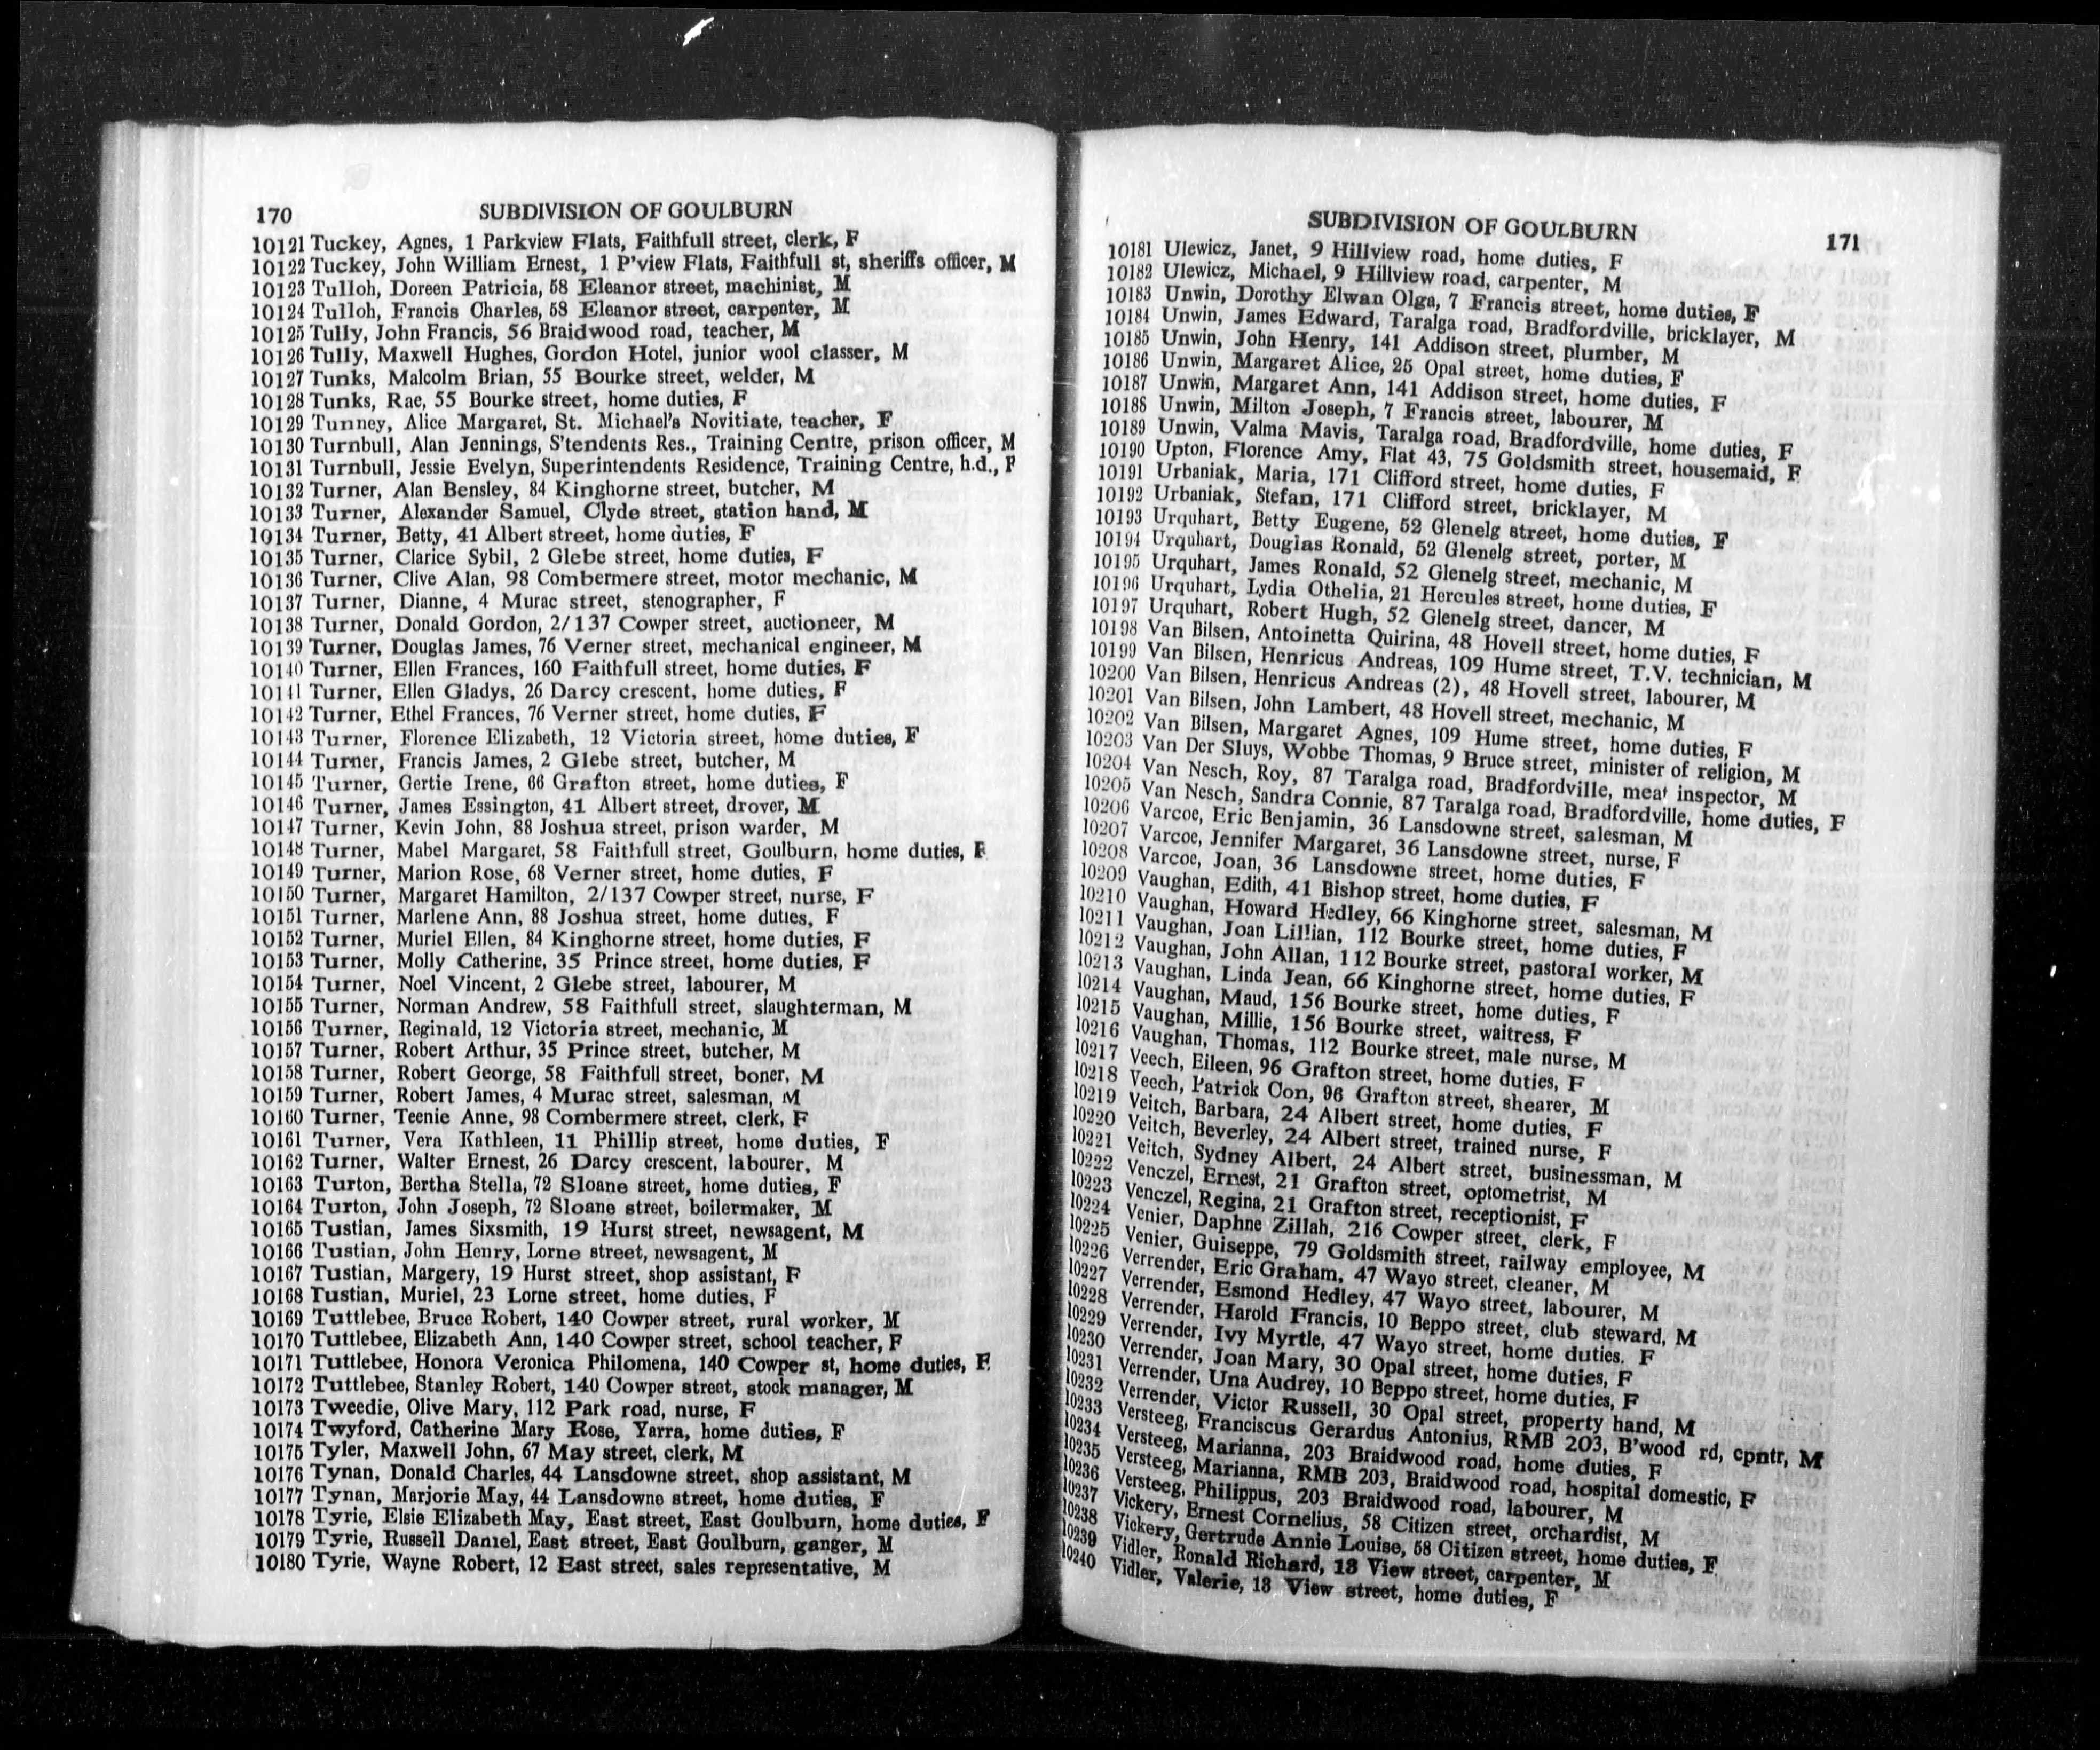 170
SUBDIVISION OF GOULBURN
10121 Tuckey, Agnes, 1 Parkview Flats, Faithfull street, clerk, F
10122 Tuckey, John William Ernest, 1 P'view Flats, Faithfull st, sheriffs officer, M
10123 Tulloh, Doreen Patricia, 58 Eleanor street, machinist, M
10124 Tulloh, Francis Charles, 58 Eleanor street, carpenter, M
10125 Tully, John Francis, 56 Braidwood road, teacher, M
10126 Tully, Maxwell Hughes, Gordon Hotel, junior wool classer, M
10127 Tunks, Malcolm Brian, 55 Bourke street, welder, M
10128 Tunks, Rae, 55 Bourke street, home duties, F
10129 Tunney, Alice Margaret, St. Michael's Novitiate, teacher, F
10130 Turnbull, Alan Jennings, S'tendents Res., Training Centre, prison officer, M
10131 Turnbull, Jessie Evelyn, Superintendents Residence, Training Centre, h.d., F
10132 Turner, Alan Bensley, 84 Kinghorne street, butcher, M
10133 Turner, Alexander Samuel, Clyde street, station hand, M
10134 Turner, Betty, 41 Albert street, home duties, F
10135 Turner, Clarice Sybil, 2 Glebe street, home duties, F
10136 Turner, Clive Alan, 98 Combermere street, motor mechanic, M
10137 Turner, Dianne, 4 Murac street, stenographer, F
10138 Turner, Donald Gordon, 2/137 Cowper street, auctioneer, M
10139 Turner, Douglas James, 76 Verner street, mechanical engineer, M
10140 Turner, Ellen Frances, 160 Faithfull street, home duties, F
10141 Turner, Ellen Gladys, 26 Darcy crescent, home duties, F
10142 Turner, Ethel Frances, 76 Verner street, home duties, F
10143 Turner, Florence Elizabeth, 12 Victoria street, home duties, F
10144 Turner, Francis James, 2 Glebe street, butcher, M
10145 Turner, Gertie Irene, 66 Grafton street, home duties, F
10146 Turner, James Essington, 41 Albert street, drover, M
10147 Turner, Kevin John, 88 Joshua street, prison warder, M
10148 Turner, Mabel Margaret, 58 Faithfull street, Goulburn, home duties, F
10149 Turner, Marion Rose, 68 Verner street, home duties, F
10150 Turner, Margaret Hamilton, 2/137 Cowper street, nurse, F
10151 Turner, Marlene Ann, 88 Joshua street, home duties, F
10152 Turner, Muriel Ellen, 84 Kinghorne street, home duties, F
10153 Turner, Molly Catherine, 35 Prince street, home duties, F
10154 Turner, Noel Vincent, 2 Glebe street, labourer, M
10155 Turner, Norman Andrew, 58 Faithfull street, slaughterman, M
10156 Turner, Reginald, 12 Victoria street, mechanic, M
10157 Turner, Robert Arthur, 35 Prince street, butcher, M
10158 Turner, Robert George, 58 Faithfull street, boner, M
10159 Turner, Robert James, 4 Murac street, salesman, M
10160 Turner, Teenie Anne, 98 Combermere street, clerk, F
10161 Turner, Vera Kathleen, 11 Phillip street, home duties, F
10162 Turner, Walter Ernest, 26 Darcy crescent, labourer, M
10163 Turton, Bertha Stella, 72 Sloane street, home duties, F
10164 Turton, John Joseph, 72 Sloane street, boilermaker, M
10165 Tustian, James Sixsmith, 19 Hurst street, newsagent, M
10166 Tustian, John Henry, Lorne street, newsagent, M
10167 Tustian, Margery, 19 Hurst street, shop assistant, F
10168 Tustian, Muriel, 23 Lorne street, home duties, F
10169 Tuttlebee, Bruce Robert, 140 Cowper street, rural worker, M
10170 Tuttlebee, Elizabeth Ann, 140 Cowper street, school teacher, F
10171 Tuttlebee, Honora Veronica Philomena, 140 Cowper st, home duties, F
10172 Tuttlebee, Stanley Robert, 140 Cowper street, stock manager, M
10173 Tweedie, Olive Mary, 112 Park road, nurse, F
10174 Twyford, Catherine Mary Rose, Yarra, home duties, F
10175 Tyler, Maxwell John, 67 May street, clerk, M
10176 Tynan, Donald Charles, 44 Lansdowne street, shop assistant, M
10177 Tynan, Marjorie May, 44 Lansdowne street, home duties, F
10178 Tyrie, Elsie Elizabeth May, East street, East Goulburn, home duties, F
10179 Tyrie, Russell Daniel, East street, East Goulburn, ganger, M
10180 Tyrie, Wayne Robert, 12 East street, sales representative, M
SUBDIVISION OF GOULBURN
171
10181 Ulewicz, Janet, 9 Hillview road, home duties, F
10182 Ulewicz, Michael, 9 Hillview road, carpenter, M
10183 Unwin, Dorothy Elwan Olga, 7 Francis street, home duties, F
10184 Unwin, James Edward, Taralga road, Bradfordville, bricklayer, M
10185 Unwin, John Henry, 141 Addison street, plumber, M
10186 Unwin, Margaret Alice, 25 Opal street, home duties, F
10187 Unwin, Margaret Ann, 141 Addison street, home duties, F
10188 Unwin, Milton Joseph, 7 Francis street, labourer, M
10189 Unwin, Valma Mavis, Taralga road, Bradfordville, home duties, F
10190 Upton, Florence Amy, Flat 43, 75 Goldsmith street, housemaid, F
10191 Urbaniak, Maria, 171 Clifford street, home duties, F
10192 Urbaniak, Stefan, 171 Clifford street, bricklayer, M
10193 Urquhart, Betty Eugene, 52 Glenelg street, home duties, F
10194 Urquhart, Douglas Ronald, 52 Glenelg street, porter, M
10195 Urquhart, James Ronald, 52 Glenelg street, mechanic, M
10196 Urquhart, Lydia Othelia, 21 Hercules street, home duties, F
10197 Urquhart, Robert Hugh, 52 Glenelg street, dancer, M
10198 Van Bilsen, Antoinetta Quirina, 48 Hovell street, home duties, F
10199 Van Bilsen, Henricus Andreas, 109 Hume street, T.V. technician, M
10200 Van Bilsen, Henricus Andreas (2), 48 Hovell street, labourer, M
10201 Van Bilsen, John Lambert, 48 Hovell street, mechanic, M
10202 Van Bilsen, Margaret Agnes, 109 Hume street, home duties, F
10203 Van Der Sluys, Wobbe Thomas, 9 Bruce street, minister of religion, M
10204 Van Nesch, Roy, 87 Taralga road, Bradfordville, meat inspector, M
10205 Van Nesch, Sandra Connie, 87 Taralga road, Bradfordville, home duties, F
10206 Varcoe, Eric Benjamin, 36 Lansdowne street, salesman, M
10207 Varcoe, Jennifer Margaret, 36 Lansdowne street, nurse, F
10208 Varcoe, Joan, 36 Lansdowne street, home duties, F
10209 Vaughan, Edith, 41 Bishop street, home duties, F
10210 Vaughan, Howard Hedley, 66 Kinghorne street, salesman, M
10211 Vaughan, Joan Lillian, 112 Bourke street, home duties, F
10212 Vaughan, John Allan, 112 Bourke street, pastoral worker, M
10213 Vaughan, Linda Jean, 66 Kinghorne street, home duties, F
10214 Vaughan, Maud, 156 Bourke street, home duties, F
10215 Vaughan, Millie, 156 Bourke street, waitress, F
10216 Vaughan, Thomas, 112 Bourke street, male nurse, M
10217 Veech, Eileen, 96 Grafton street, home duties, F
10218 Veech, Patrick Con, 96 Grafton street, shearer, M
10219 Veitch, Barbara, 24 Albert street, home duties, F
10220 Veitch, Beverley, 24 Albert street, trained nurse, F
10221 Veitch, Sydney Albert, 24 Albert street, businessman, M
10222 Venczel, Ernest, 21 Grafton street, optometrist, M
10223 Venczel, Regina, 21 Grafton street, receptionist, F
10224 Venier, Daphne Zillah, 216 Cowper street, clerk, F
10225 Venier, Guiseppe, 79 Goldsmith street, railway employee, M
10226 Verrender, Eric Graham, 47 Wayo street, cleaner, M
10227 Verrender, Esmond Hedley, 47 Wayo street, labourer, M
10228 Verrender, Harold Francis, 10 Beppo street, club steward, M
10229 Verrender, Ivy Myrtle, 47 Wayo street, home duties. F
10230 Verrender, Joan Mary, 30 Opal street, home duties, F
10231 Verrender, Una Audrey, 10 Beppo street, home duties, F
10232 Verrender, Victor Russell, 30 Opal street, property hand, M
10233 Versteeg, Franciscus Gerardus Antonius, RMB 203, B'wood rd, cpntr, M
10234 Versteeg, Marianna, 203 Braidwood road, home duties, F
10235 Versteeg, Marianna, RMB 203, Braidwood road, hospital domestic, F
10236 Versteeg, Philippus, 203 Braidwood road, labourer, M
10237 Vickery, Ernest Cornelius, 58 Citizen street, orchardist, M
10238 Vickery, Gertrude Annie Louise, 58 Citizen street, home duties, F
10239 Vidler, Ronald Richard, 18 View street, carpenter, M
10240 Vidler, Valerie, 18 View street, home duties, F